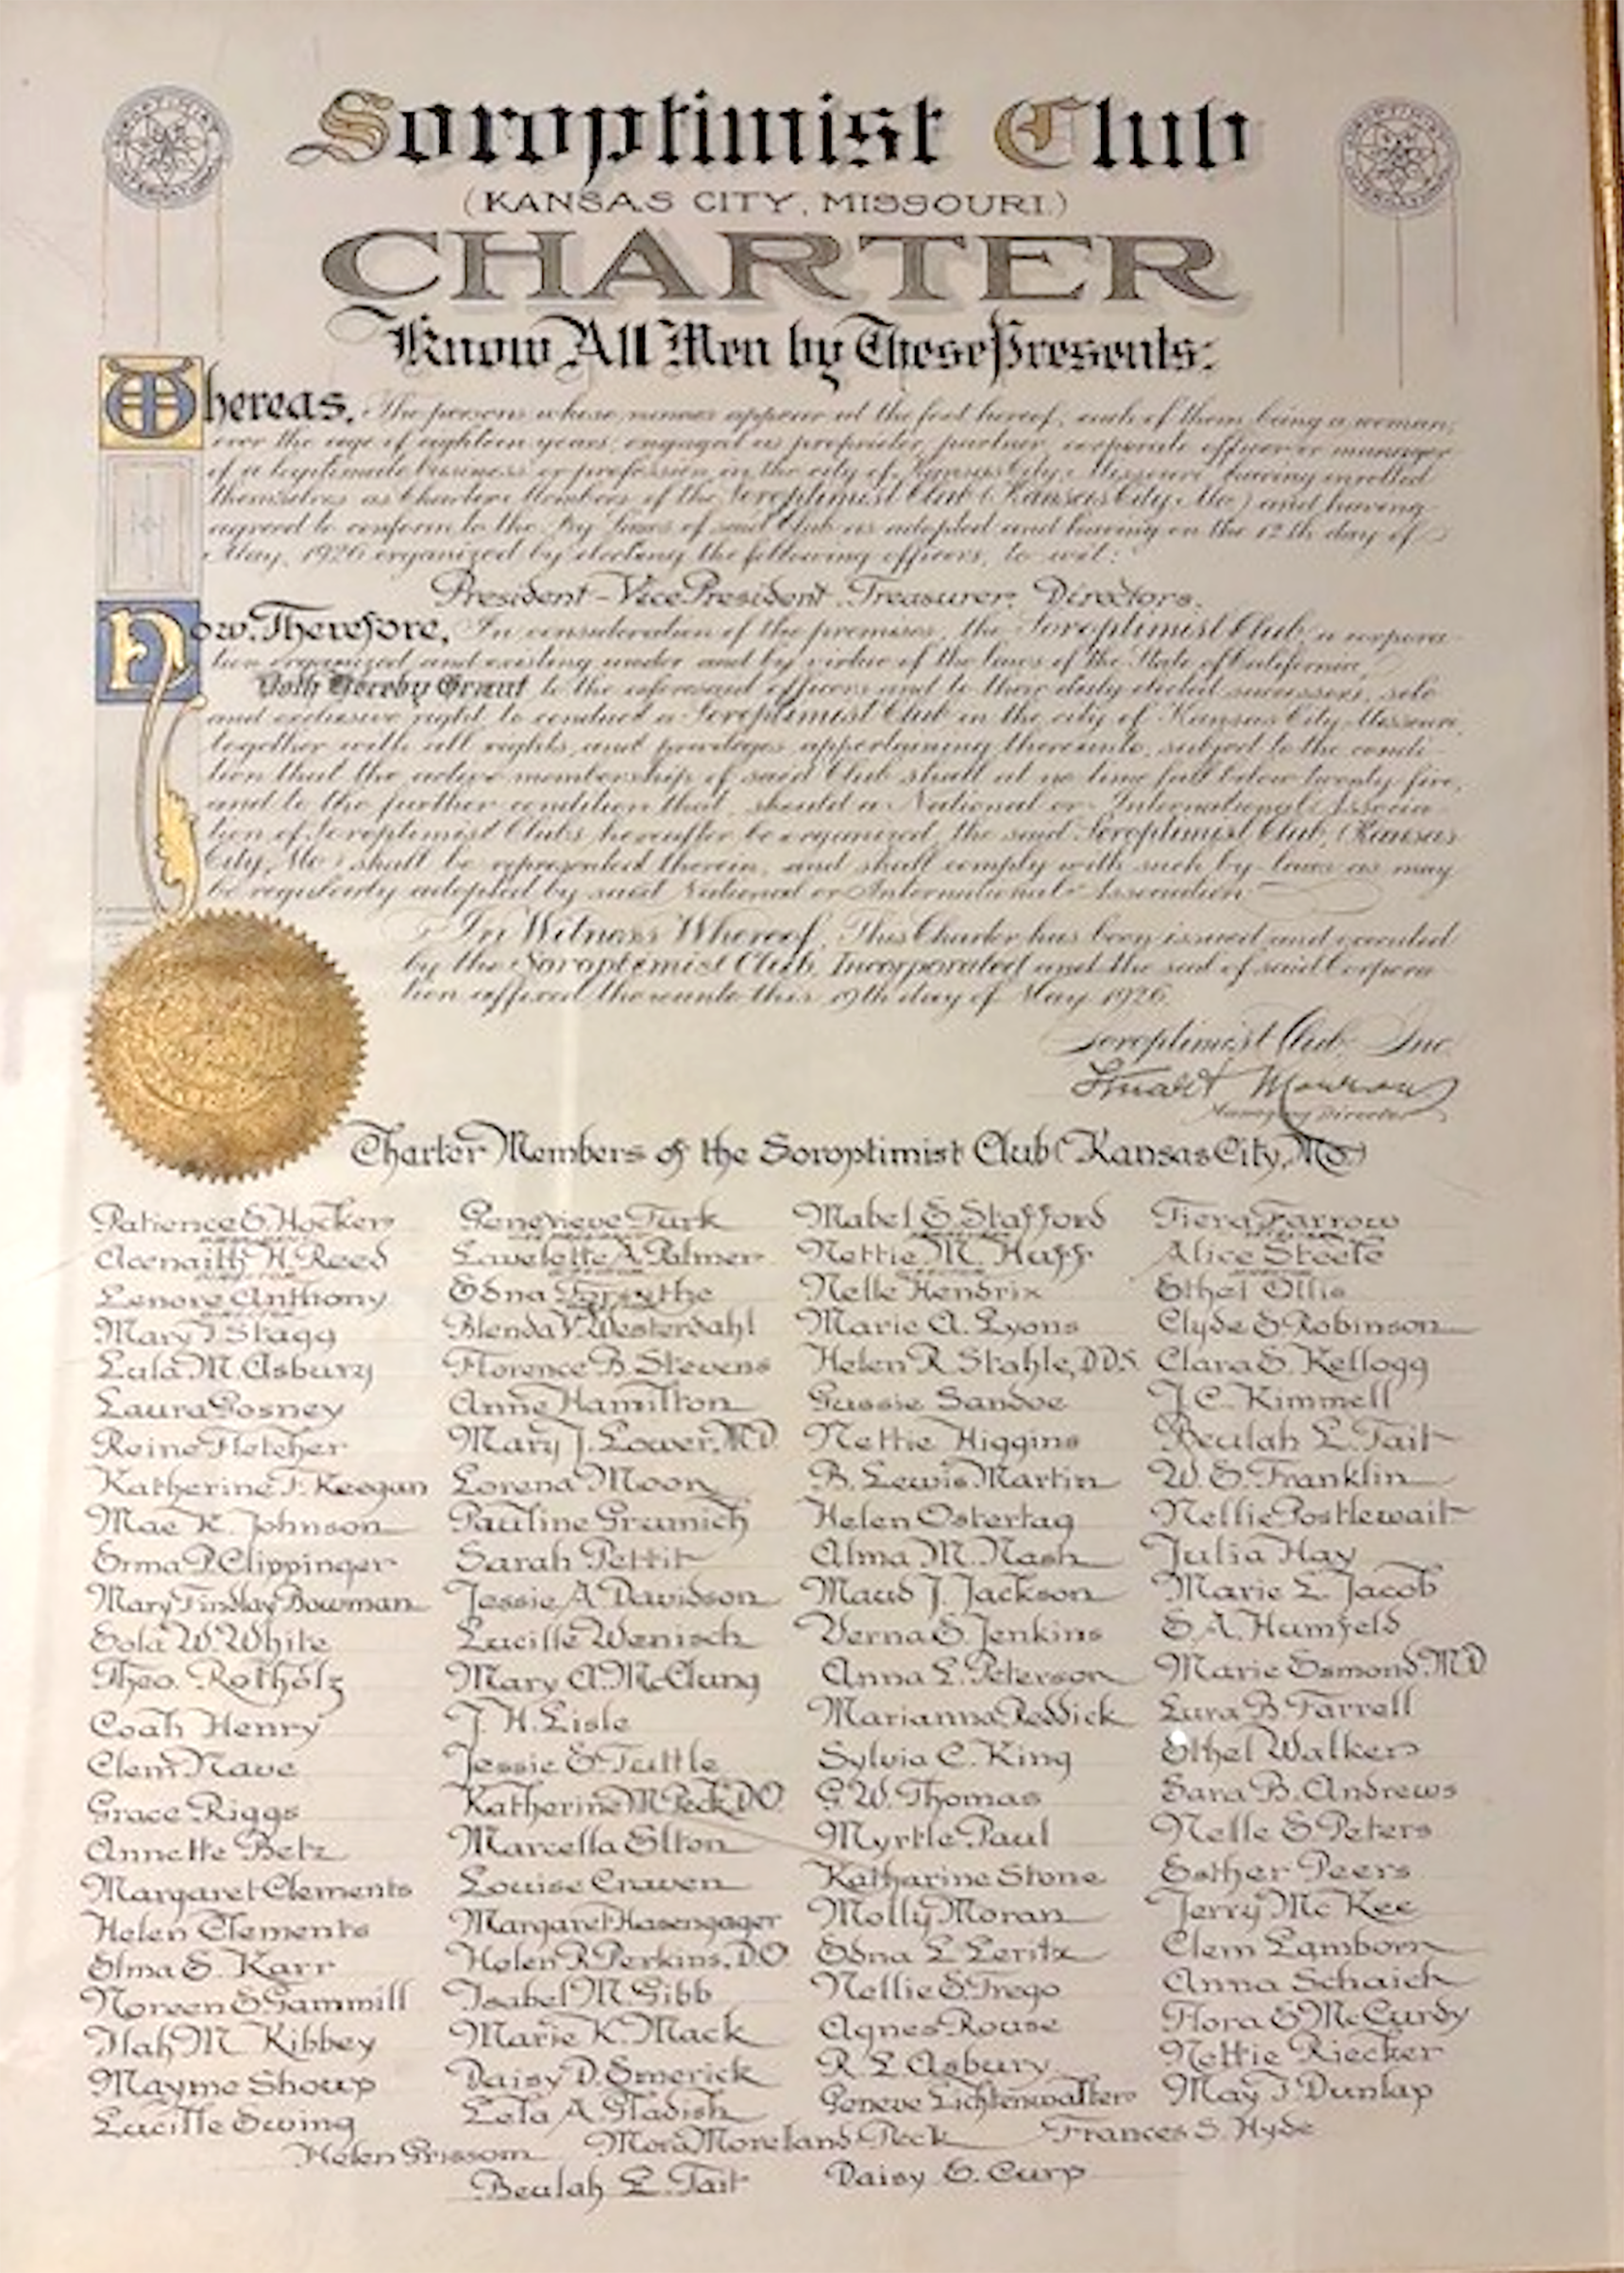 Soroptimist Club
(KANSAS CITY, MISSOURI.)
CHARTER
Know All Men by These Presents:
Whereas, The persons whose names appear at the foot hereof; each of them being a woman,
over the age of eighteen years, engaged as proprietor, partner, corporate officer or manager
of a legitimate business or profession in the city of Kansas City, Missouri having enrolled
themselves as Charter Members of the Soroptimist Club (Kansas City, Mo.) and having
agreed to conform to the By Laws of said Club as adopted and having on the 12th day of
May, 1926 organized by electing the following officers, to wit:
President - Vice President. Treasurer. Directors.
Now, Therefore, In consideration of the premises, the Soroptimist Club, a corpora-
tion organized and existing under and by virtue of the laws of the State of California,
Doth Hereby Grant to the aforesaid officers and to their duly elected successors, sole
and exclusive right to conduct a Soroptimist Club in the city of Kansas City, Missouri,
together with all rights and privileges appertaining thereunto, subject to the condi-
tion that the active membership of said Club shall at no time fall below twenty-five,
and to the further condition that, should a National or International Associa-
tion of Soroptimist Clubs hereafter be organized, the said Soroptimist Club, (Kansas
City, Mo.) shall be represented therein, and shall comply with such by-laws as may
be regularly adopted by said National or International Association
In Witness Whereof, This Charter has been issued and executed
by the Soroptimist Club, Incorporated and the seal of said Corpora-
tion affixed thereunto this 19th day of May 1926.
Soroptimist Club Inc.
Stuart Morrow
Managing Director
Charter Members of the Soroptimist Club (Kansas City, Mo.)
Patience E. Hocker
Acenaith H. Reed
Lenore Anthony
Mary T Stagg
Lula M. Asbury
Laura Posney
Reine Fletcher
Katherine F. Keegan
Mae K. Johnson
Erma P. Clippinger
Mary Findlay Bowman
Eola W. White
Theo. Rotholz
Coah Henry
Clem Nave
Grace Riggs
Annette Betz
Margaret Clements
Helen Clements
Elma E. Karr
Noreen E Gammill
Ilah M Kibbey
Mayme Shoup
Lucille Ewing
Genevieve Turk
Lavelette A. Palmer
Edna Forsythe
Blenda V. Westerdahl
Florence B. Stevens
Anne Hamilton
Mary J. Lower, M.D.
Lorena Moon
Pauline Grumich
Sarah Pettit
Jessie A Davidson
Lucille Wenisch
Mary A. McClung
J. H. Lisle
Jessie E Tuttle
Katherine M Peck, D.O.
Marcella Elton
Louise Craven
Margaret Hasengager
Helen R Perkins, D.O.
Isabel M. Gibb
Marie K. Mack
Daisy D. Emerick
Lela A Gladish
Mabel E. Stafford
Nettie M. Huff
Nelle Hendrix
Marie A. Lyons
Helen R Stahle, D.D.S.
Gussie Sandoe
Nettie Higgins
B. Lewis Martin
Helen Ostertag
Alma M. Nash
Maud J. Jackson
Verna E. Jenkins
Anna L. Peterson
Marianna Reddick
Sylvia C. King
G. W. Thomas
Myrtle Paul
Katharine Stone
Molly Moran
Edna L Leritz
Nellie E Trego
Agnes Rouse
R. L Asbury
Geneve Lichtenwalter
Tiera Farrow
Alice Steele
Ethel Ollis
Clyde E Robinson
Clara E. Kellogg
J. C. Kimmell
Beulah L. Tait
W. E. Franklin
Nellie Postlewait
Julia Hay
Marie L. Jacob
E A. Humfeld
Marie Esmond M.D.
Lura B. Farrell
Ethel Walker
Sara B. Andrews
Nelle E Peters
Esther Peers
Jerry McKee
Clem Lamborn
Anna Schaich
Flora E McCurdy
Nettie Riecker
May T Dunlap
Helen Grissom
Mora Moreland Peck
Frances S. Hyde
Beulah L. Tait
Daisy E. Curp